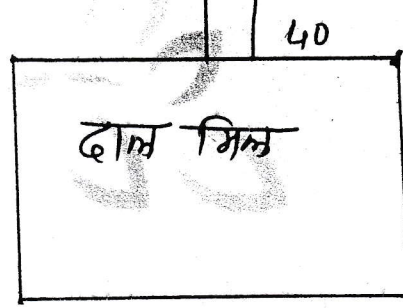 40
दाल मिल